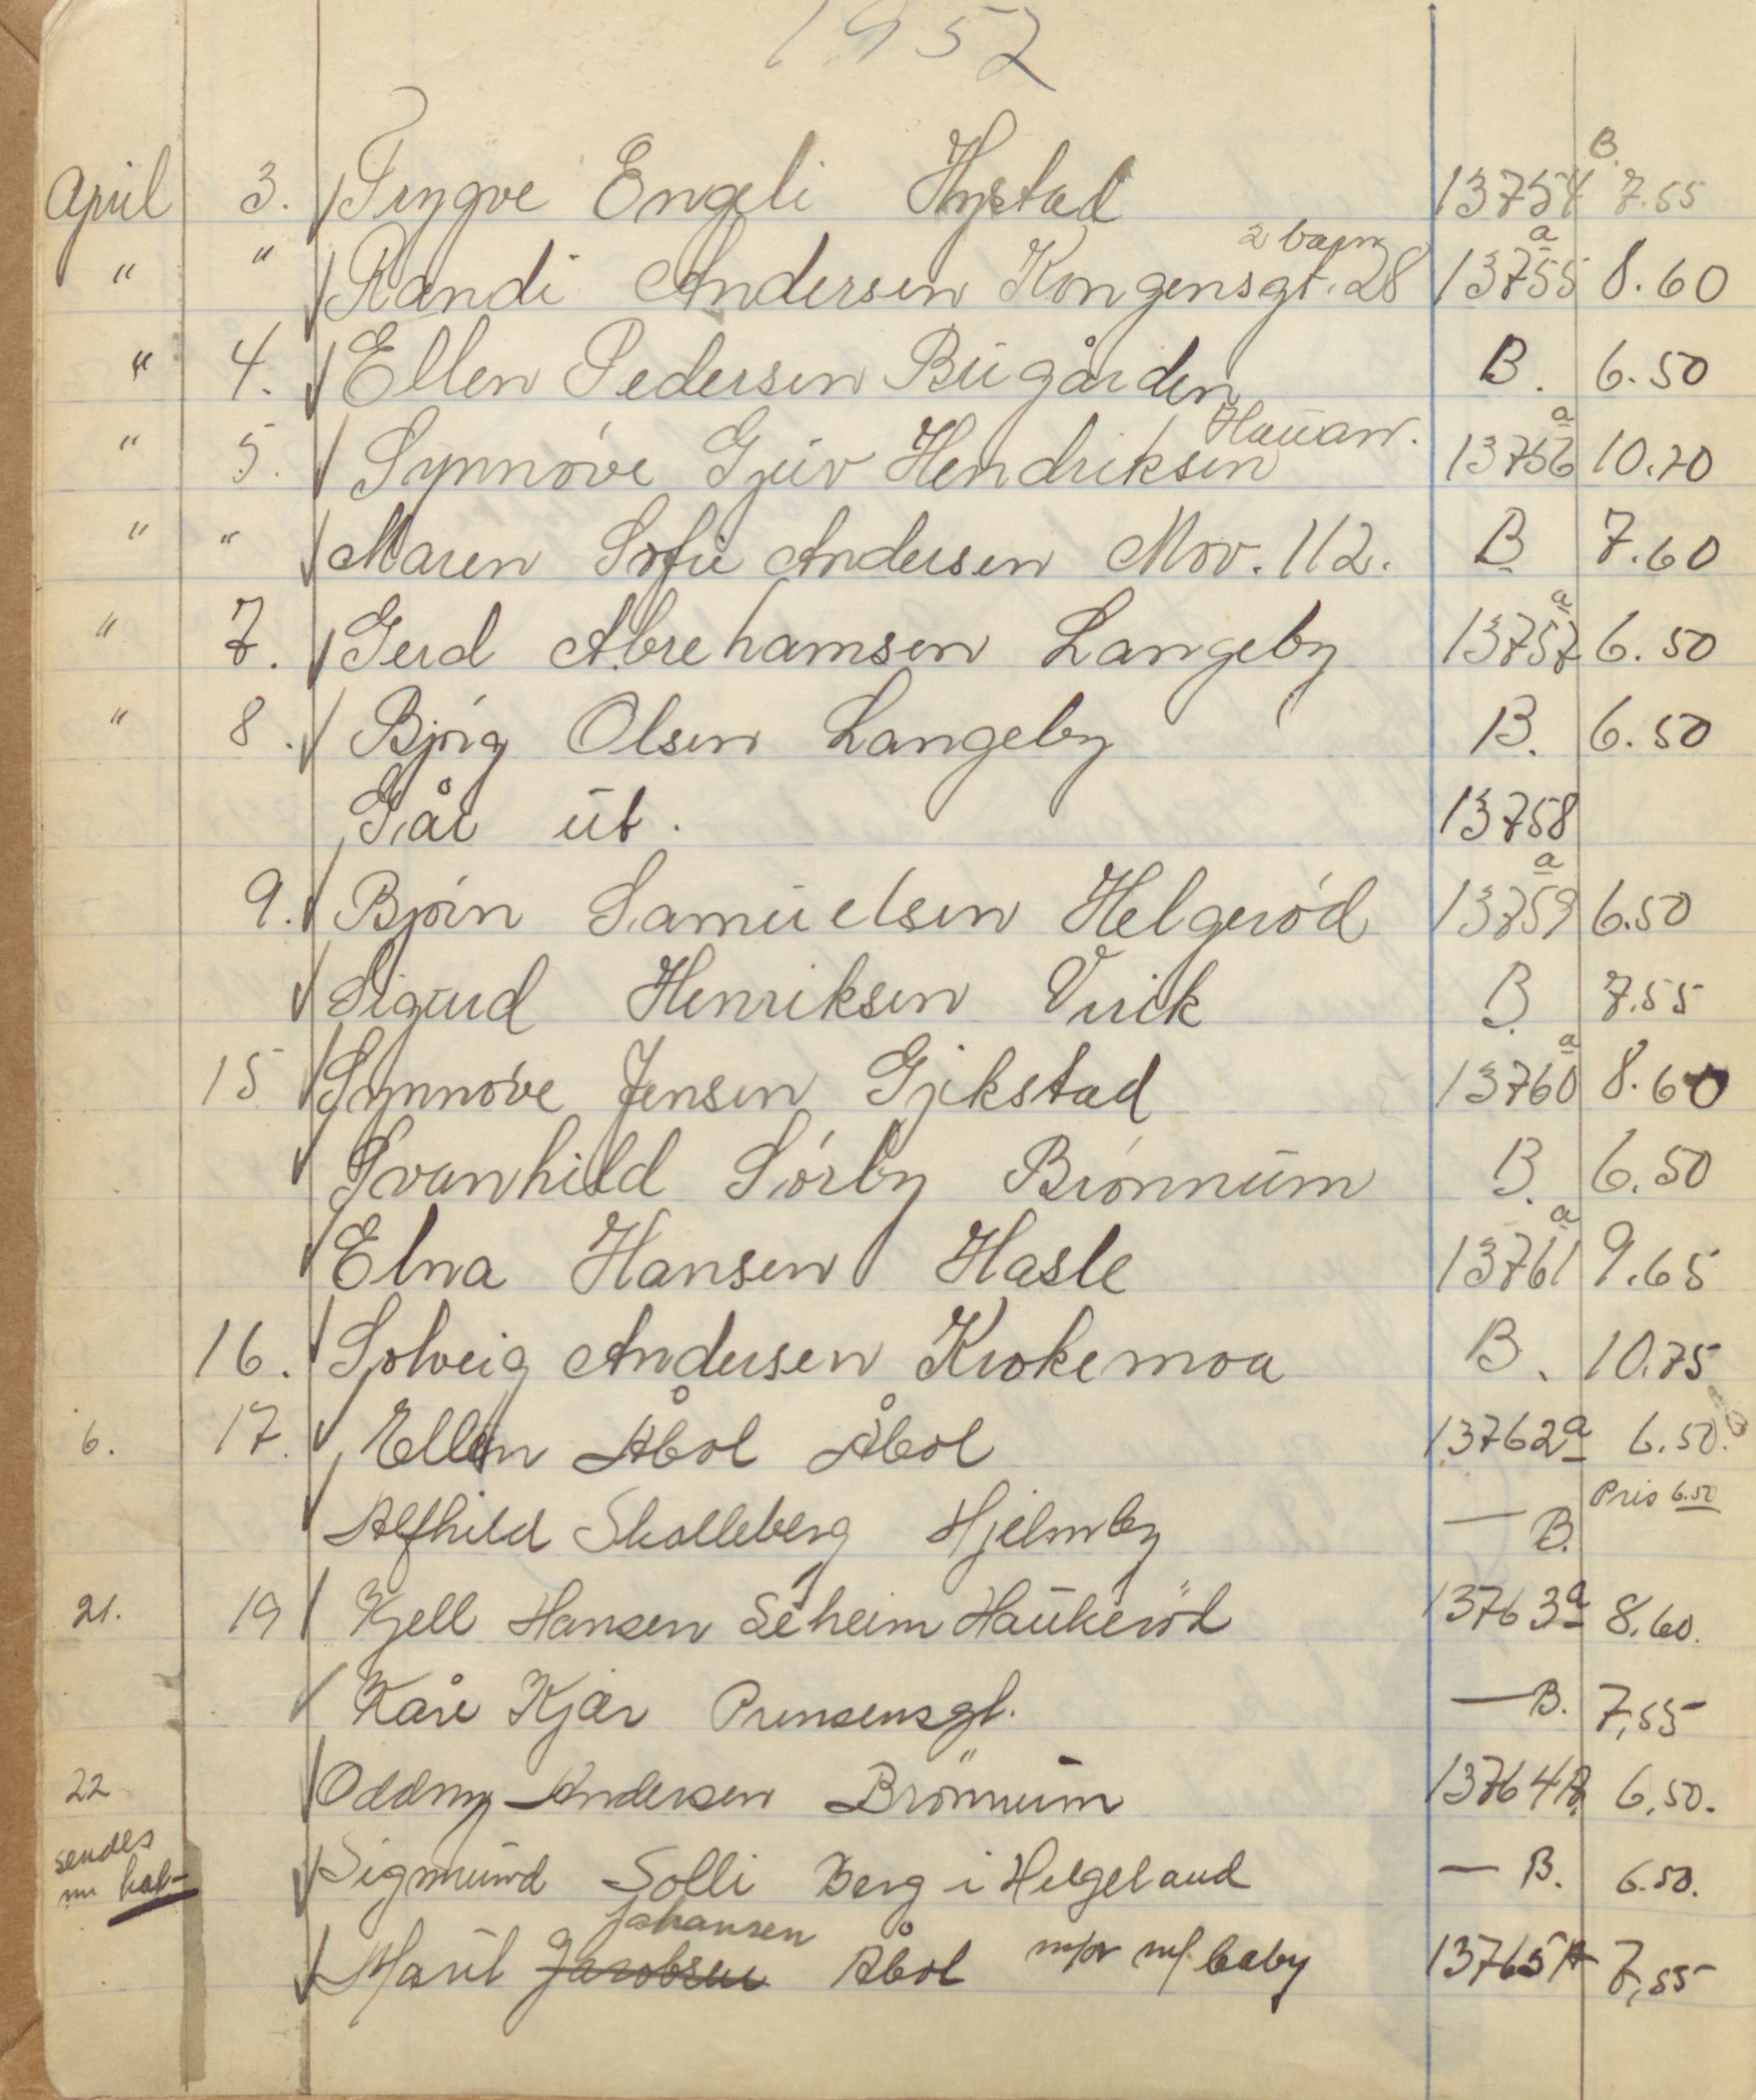 1952
April 3. Trygve Engeli Hystad 13754 B. 7.55
" " Randi Andersen Kongensgt. 28 2 barn 13755 a 8.60
" 4. Ellen Pedersen Bugården B. 6.50
" 5. Synnøve Gjuv Hendriksen Hauan. 13756 a 10.70
" " Maren Sofie Andersen Mov. 112. B 7.60
" 7. Gerd Abrehamsen Langeby 13757 a 6.50
" 8. Bjørg Olsen Langeby B. 6.50
Går ut. 13758
9. Bjørn Samuelsen Helgerød 13759 a 6.50
Sigurd Henriksen Virik B. 7.55
15 Synnøve Jensen Gjekstad 13760 a 8.60
Svanhild Sørby Brønnum B. 6.50
Elna Hansen Hasle 13761 a 9.65
16. Solveig Andersen Krokemoa B. 10.75
6. 17. Ellen Åbol Åbol 13762 a 6.50.
Alfhild Skolleberg Hjelmby — B. Pris 6.50
21. 19 Kjell Hansen Seheim Haukeröd 13763 a 8.60.
Kåre Kjær Prinsensgt. — B. 7,55
22 Oddny Andersen Brönnum 13764 A 6,50.
sendes Sigmund Solli Berg i Helgeland — B. 6.50.
Johansen
Marit Jacobsen Åbol mor m/ baby 13765 A 7,55